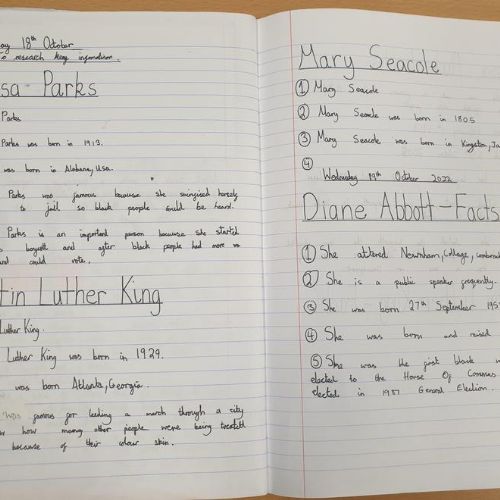 ay 18th October
o research key information.
sa Parks
Parks
Parks was born in 1913.
was born in Alabama, Usa.
Parks was famous because she
to jail so black people could be heard.
Parks is an important person because she started
boycott and after black people had more
and could vote.
tin Luther King
Luther King.
Luther King was born in 1929.
was born Atlanta, Georgia.
was famous for leading a march through a city
how many other people were being
because of their colour skin.
Mary Seacole
① Mary Seacole
② Mary Seacole was born in 1805
③ Mary Seacole was born in Kingston, Ja
④
Wednesday 19th October 2022
Diane Abbott - Facts
① She Newnham, College,
② She is a public speaker frequently.
③ She was born 27th September 195
④ She was born and raised
⑤ She was the first black
elected to the House Of Commons
elected in 1987 General Election.